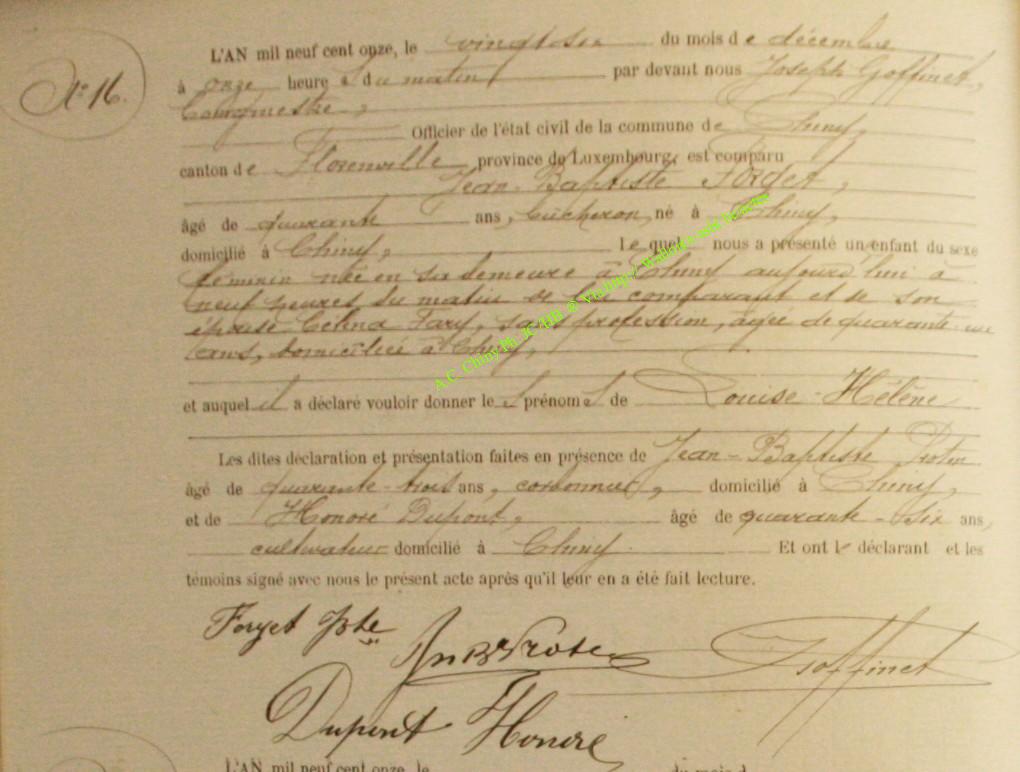 L'AN mil neuf cent onze, le vingt six du mois de décembre
N° 16. à onze heures du matin par devant nous Joseph Goffinet,
bourgmestre,
Officier de l'état civil de la commune de Chiny,
canton de Florenville province de Luxembourg, est comparu
Jean-Baptiste Forget,
âgé de quarante ans, bûcheron, né à Chiny,
domicilié à Chiny, Lequel nous a présenté un enfant du sexe
féminin née en sa demeure à Chiny aujourd'hui à
neuf heures du matin de lui comparant et de son
épouse Célina Fary, sans profession, âgée de quarante-un
ans, domiciliée à Chiny,
et auquel il a déclaré vouloir donner les prénoms de Louise-Hélène
Les dites déclaration et présentation faites en présence de Jean-Baptiste Protin
âgé de quarante-trois ans, cordonnier, domicilié à Chiny,
et de Honoré Dupont, âgé de quarante-six ans,
cultivateur domicilié à Chiny. Et ont le déclarant et les
témoins signé avec nous le présent acte après qu'il leur en a été fait lecture.
Forget Jbte
Goffinet
Dupont Honoré
L'AN mil neuf cent onze, le du mois d
A.C. Chiny Ph.